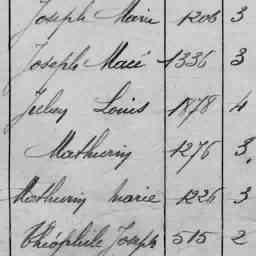 Joseph Marie 1206 3
Joseph Macé 1336 3
Jules Louis 1878 4
Mathurin 1276 3
Mathurin Marie 1226 3
Théophile Joseph 515 2